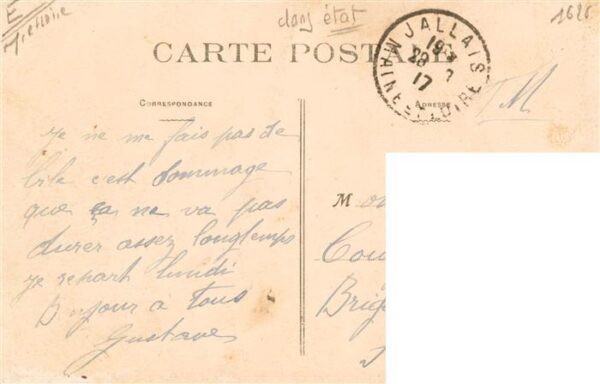 E
dans état
1626
CARTE POSTALE
JALLAIS
19
20 7
17
MAINE ET LOIRE
CORRESPONDANCE
ADRESSE
M
je ne me fais pas de
bile c'est dommage
que ça ne va pas
durer assez longtemps
je repart lundi
Bonjour à tous
Gustave
M
Cou
Brig